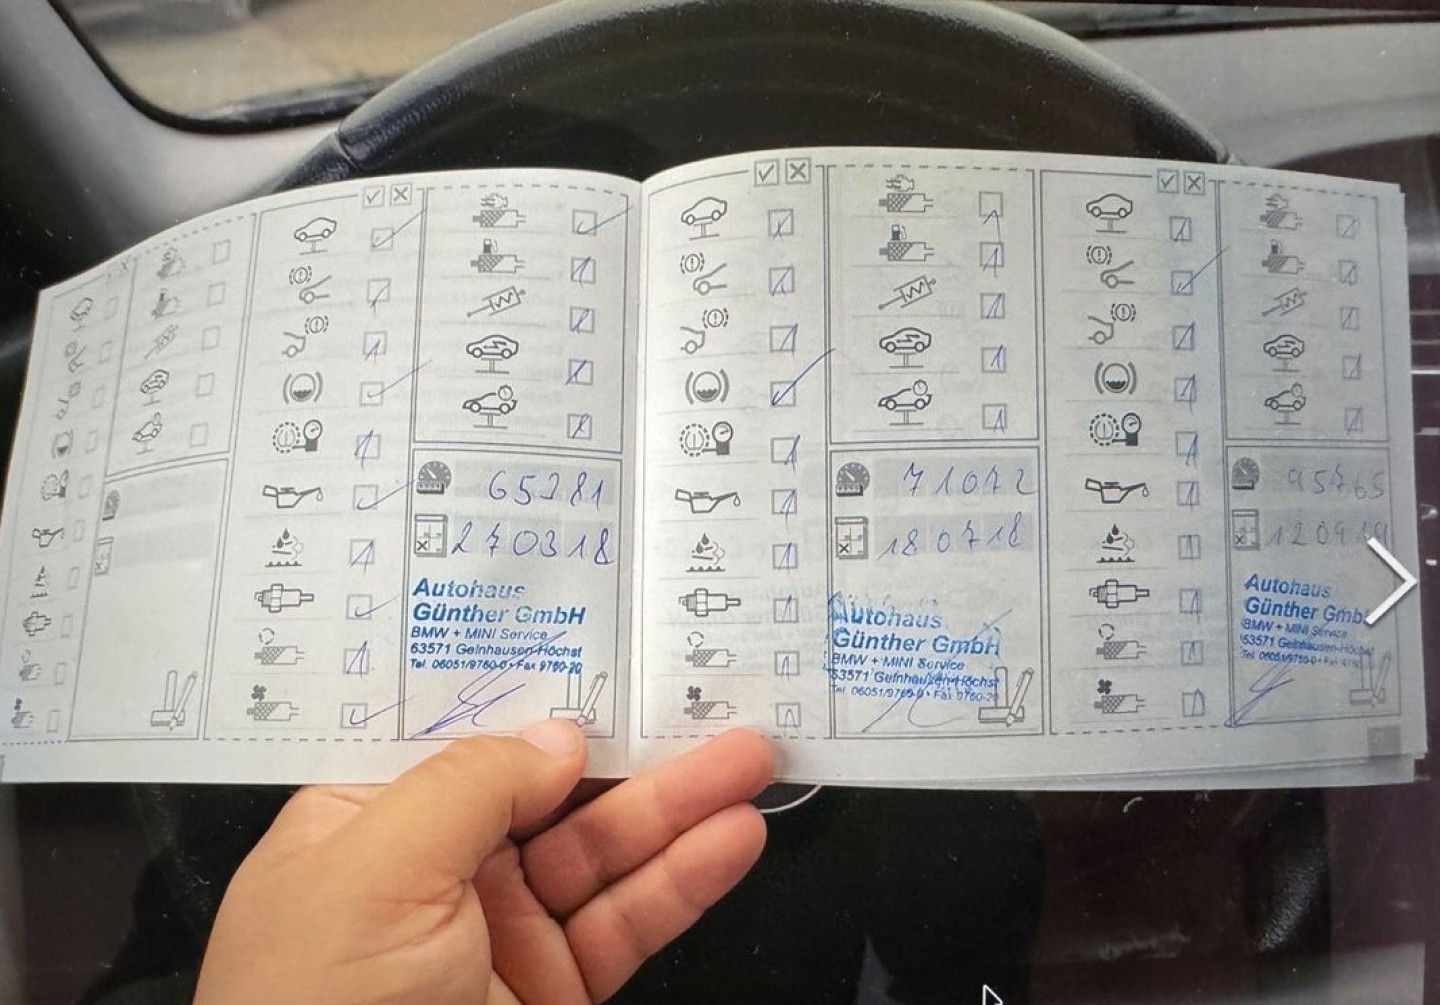 65281
270318
Autohaus
Günther GmbH
BMW + MINI Service
63571 Gelnhausen-Höchst
Tel. 06051/9760-0 • Fax 9760-20
71072
180718
Autohaus
Günther GmbH
BMW + MINI Service
63571 Gelnhausen-Höchst
Tel. 06051/9760-0 • Fax 9760-20
95765
120919
Autohaus
Günther GmbH
BMW + MINI Service
63571 Gelnhausen-Höchst
Tel. 06051/9760-0 • Fax 9760